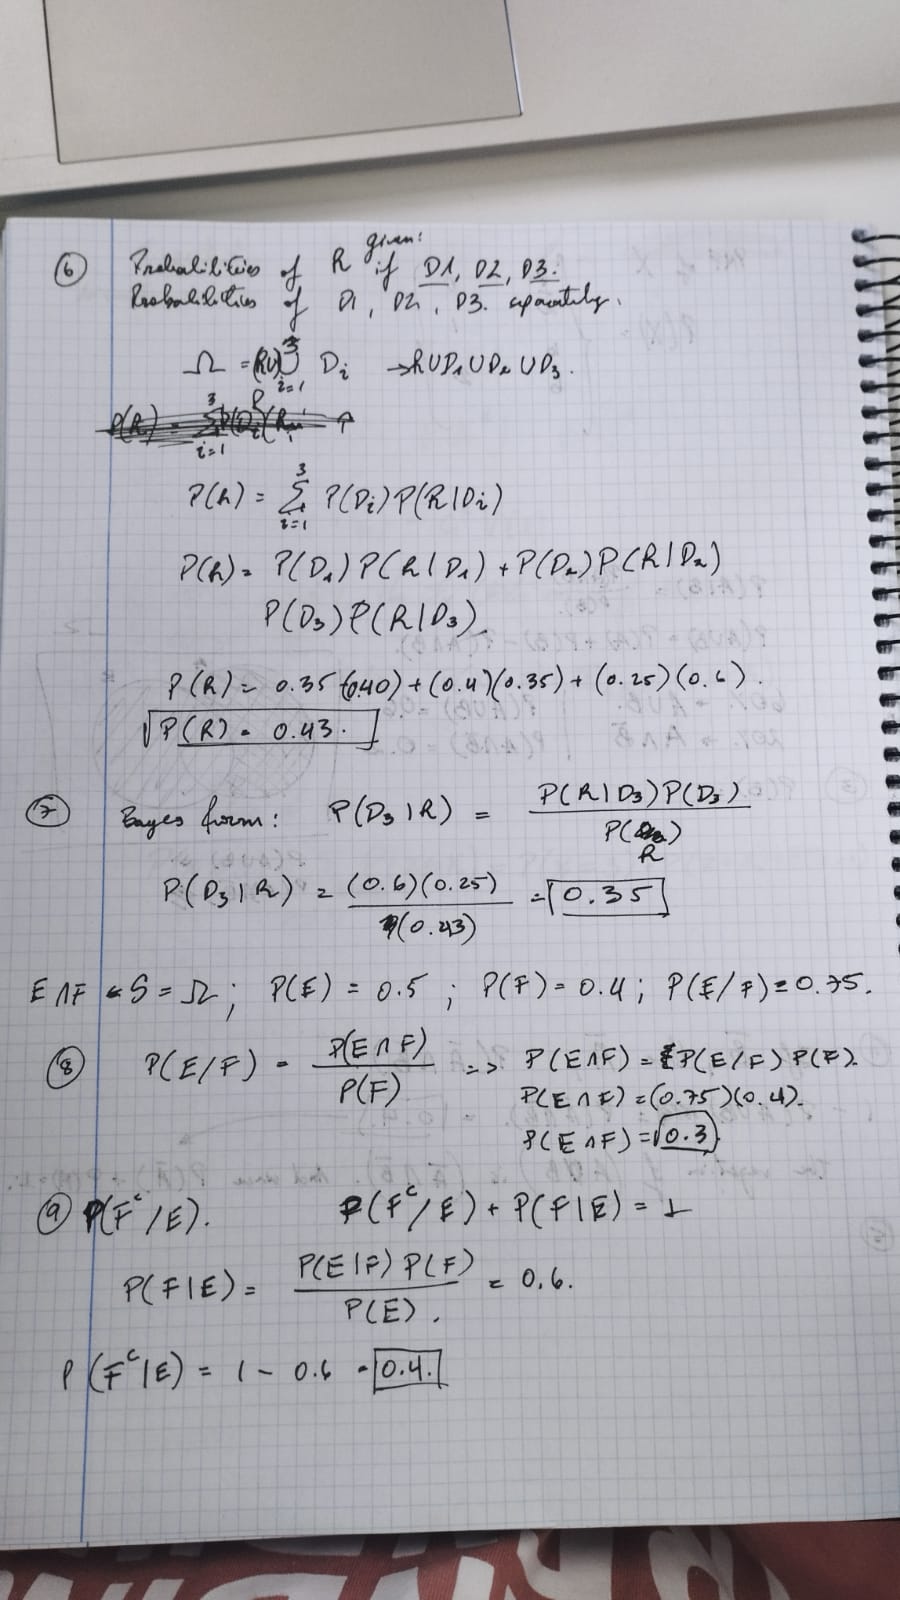 given:
⑥ Probabilities of R if D1, D2, D3.
Probabilities of D1, D2, D3. separately.
Ω = (RU) ⋃_{i=1}^{3} D_i → R ∪ D₁ ∪ D₂ ∪ D₃.
P(R) = Σ_{i=1}^{3} P(D_i)
P(R) = Σ_{i=1}^{3} P(D_i) P(R|D_i)
P(R) = P(D₁) P(R|D₁) + P(D₂) P(R|D₂)
P(D₃) P(R|D₃).
P(R) = 0.35 (0.40) + (0.4)(0.35) + (0.25)(0.6).
P(R) = 0.43.
⑦ Bayes form: P(D₃|R) = P(R|D₃) P(D₃) / P(R)
P(D₃|R) = (0.6)(0.25) / (0.43) = 0.35
E∩F ← S = Ω; P(E) = 0.5; P(F) = 0.4; P(E/F) = 0.75.
⑧ P(E/F) = P(E∩F) / P(F) => P(E∩F) = P(E/F) P(F).
P(E∩F) = (0.75)(0.4).
P(E∩F) = 0.3.
⑨ P(Fᶜ/E). P(Fᶜ/E) + P(F|E) = 1
P(F|E) = P(E|F) P(F) / P(E). = 0.6.
P(Fᶜ|E) = 1 - 0.6 = 0.4.